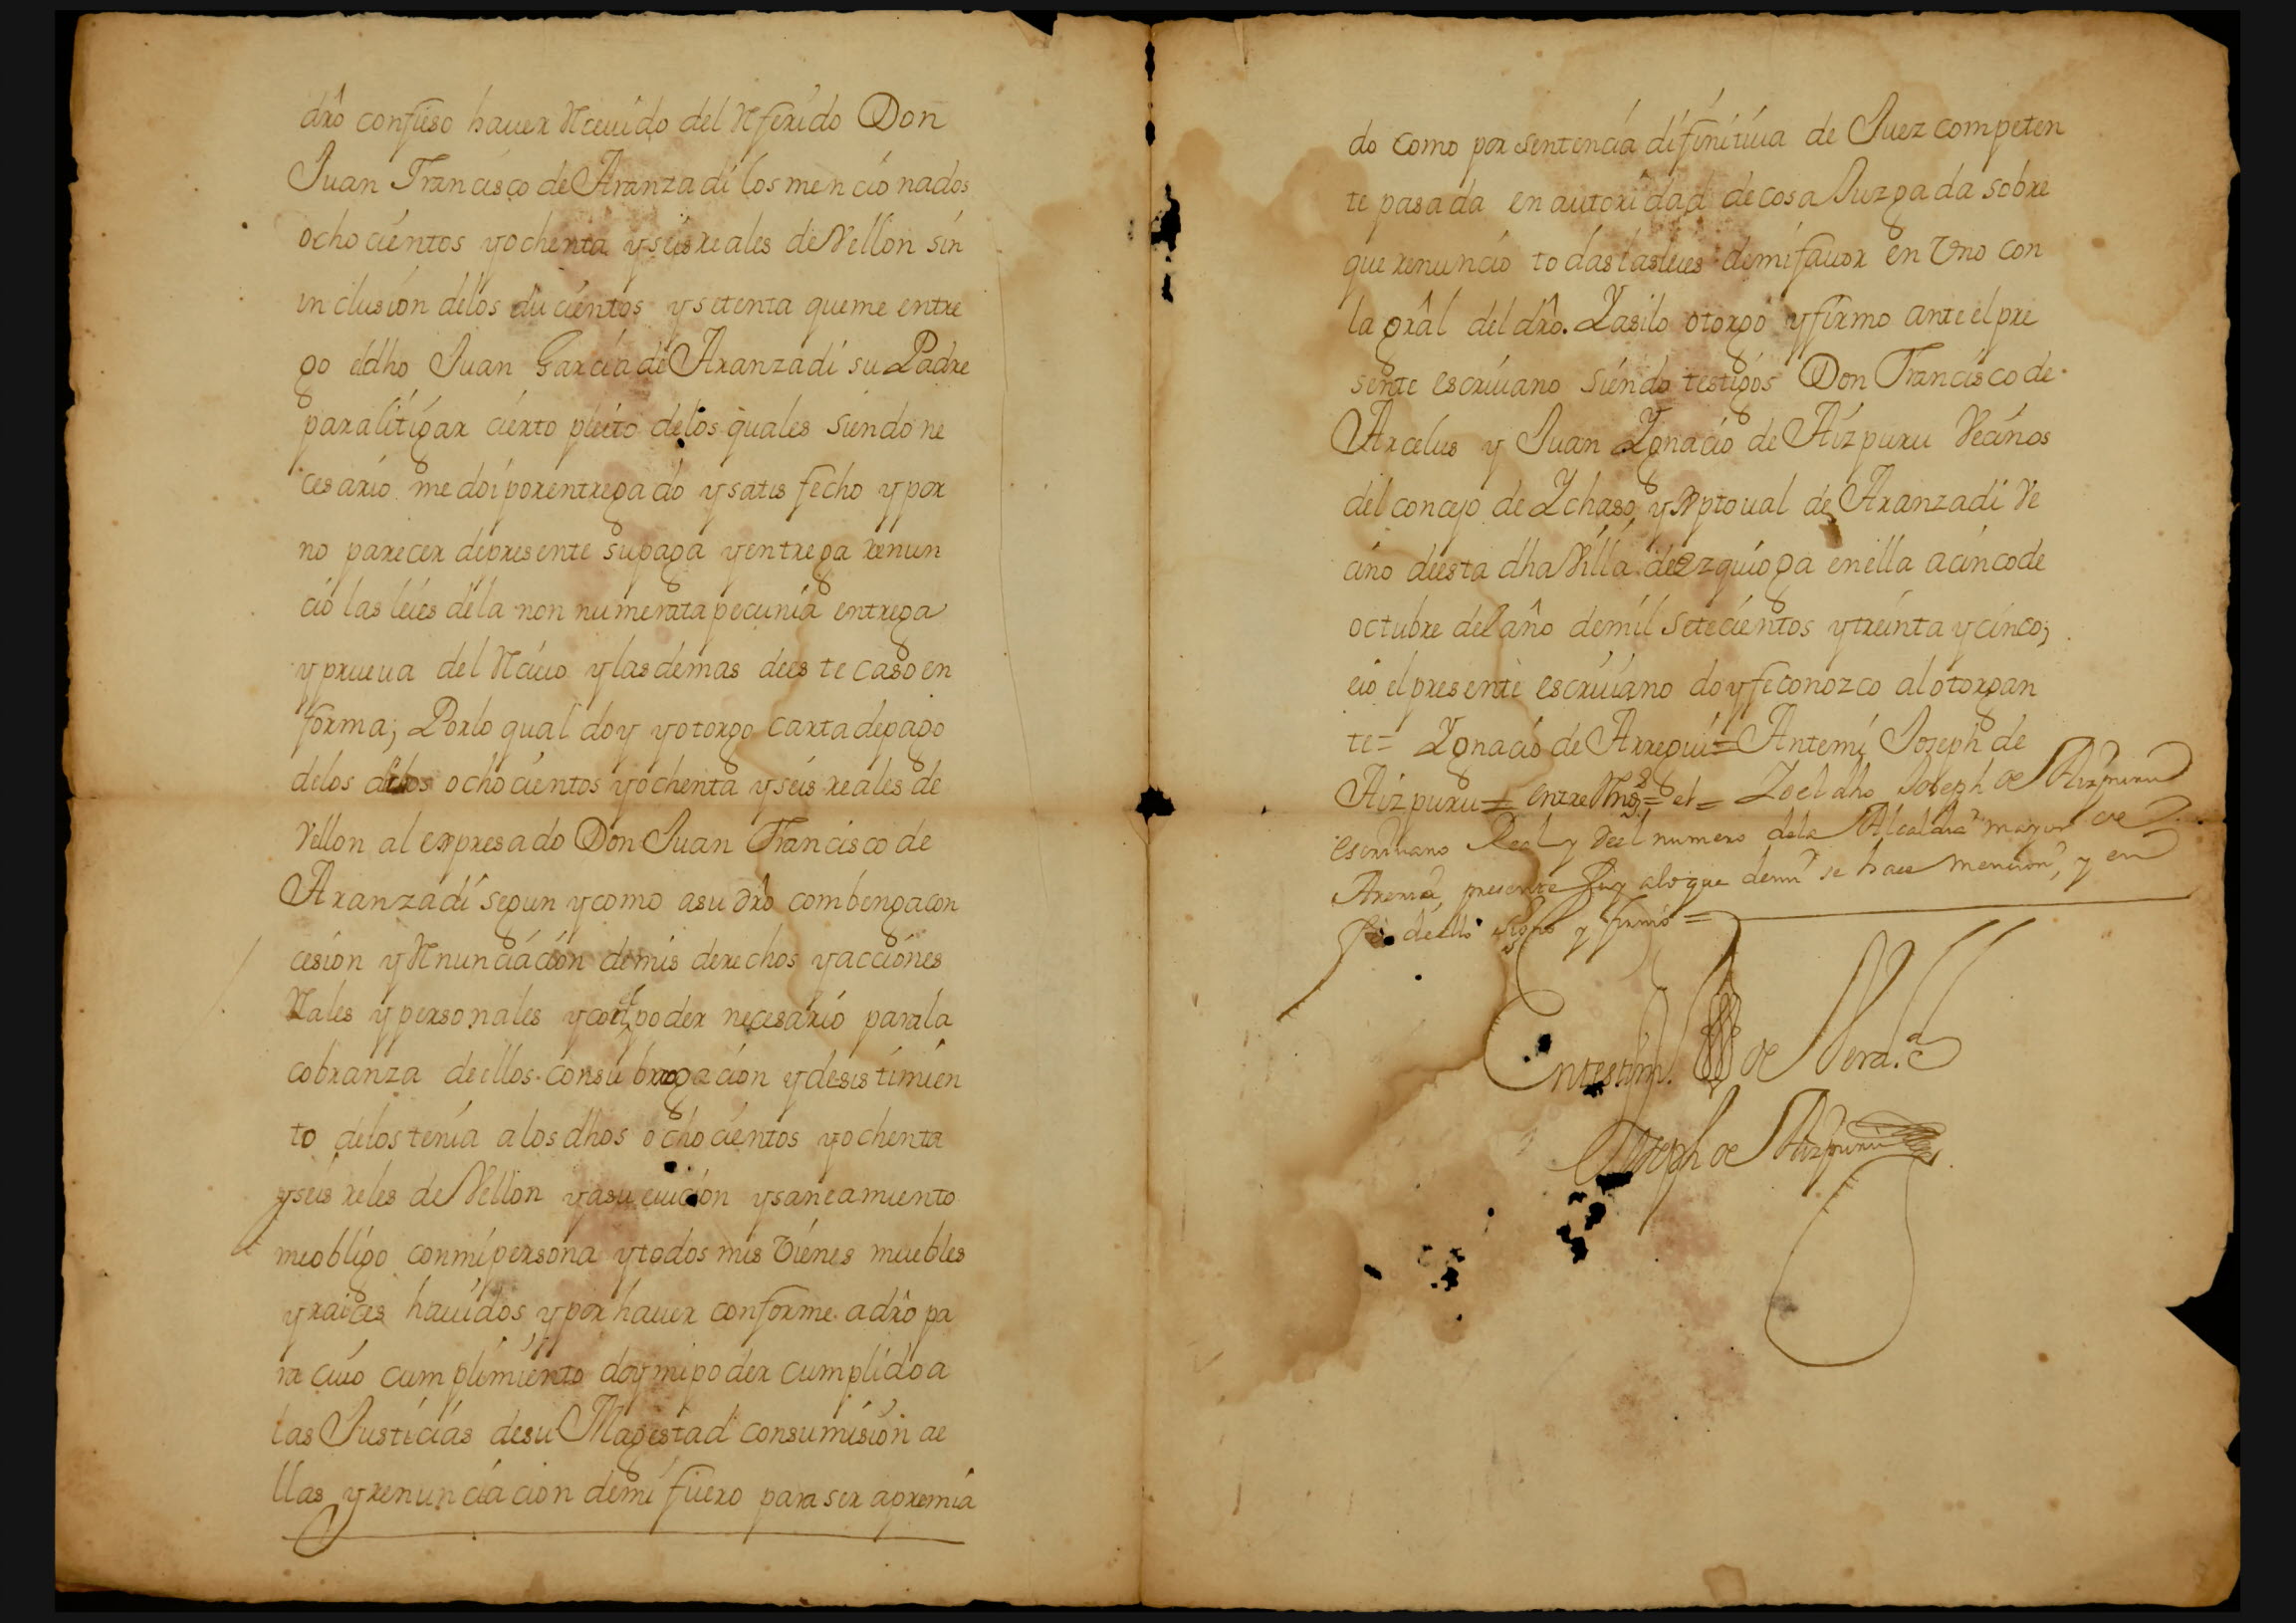 drô confieso hauer Receuido del Referido Don
Juan Francisco de Aranzadi los mencionados
ochocientos y ochenta y seis reales de Vellon sin
inclusion de los ducientos y setenta que me entre
go el dho Juan Garcia de Aranzadi su Padre
para litigar cierto pleito de los quales siendo ne
cesario me doi por entregado y satisfecho y por
no parecer de presente su paga y entrega renun
cio las leies de la non numerata pecunia entrega
y prueua del Reciuo y las demas de este caso en
forma; Por lo qual doy y otorgo carta de pago
de los dhos ochocientos y ochenta y seis reales de
Vellon al expresado Don Juan Francisco de
Aranzadi segun y como a su drô combenga con
cesion y Renunciacion de mis derechos y acciones
Reales y personales y con el poder necesario para la
cobranza de ellos con subrogacion y desistimien
to de los tenia a los dhos ochocientos y ochenta
y seis reles de Vellon y a su euiccion y saneamiento
me obligo con mi persona y todos mis Vienes muebles
y raices hauidos y por hauer conforme a drô pa
ra cuio cumplimiento doy mi poder cumplido a
las Justicias de su Magestad con sumision a e
llas y renunciacion de mi fuero para ser apremia
do como por sentencia difinitiua de Juez competen
te pasada en autoridad de cosa Juzgada sobre
que renuncio todas las leies de mi fauor en Vno con
la grâl del drô. Y asi lo otorgo y firmo ante el pre
sente escriuano siendo testigos Don Francisco de
Arcelus y Juan Ygnacio de Aizpuru Vecinos
del concejo de Ychaso y Xptoual de Aranzadi Ve
cino de esta dha Villa de Ezquioga en ella a cinco de
octubre del año de mil setecientos y treinta y cinco;
e io el presente escriuano doy fe conozco al otorgan
te= Ygnacio de Arregui= Ante mi Joseph de
Aizpuru= entre Rnes= el= Yo el dho Joseph de Aizpuru
escriuano Real y del numero de la Alcaldia mayor de
Areria, presente fuy a lo que de mi se hace mencion, y en
fe de ello signo y firmo=
En testim.º de Verd.d
Joseph de Aizpuru